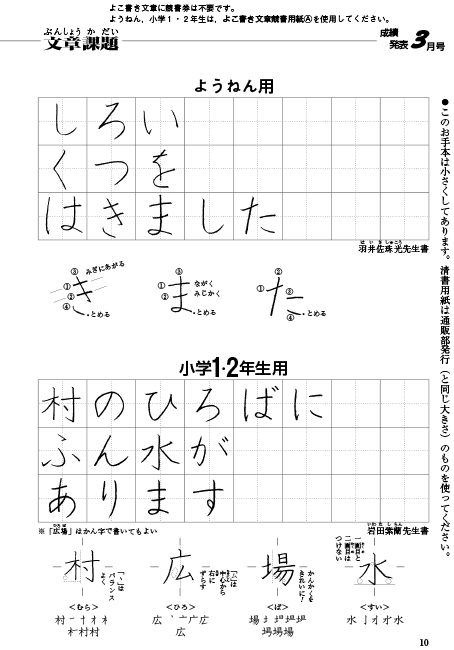 よこ書き文章に競書券は不要です。
ようねん，小学１・２年生は，よこ書き文章競書用紙Ⓐを使用してください。
ぶんしょう か だい
文章課題
成績
発表3月号
ようねん用
しろい
くつを
はきました
はいきしゅこう
羽井佐珠光先生書
③ みぎにあがる
① き
②
④ ・とめる
③
① ながく
② みじかく
ま ・とめる
②
① た ③
④ ・とめる
小学1・2年生用
村のひろばに
ふん水が
あります
ひろば
※「広場」はかん字で書いてもよい
いわたしらん
岩田紫蘭先生書
村
「丶」は
バランス
よく
<むら>
広
「亠」は
中心から
右に
ずらす
<ひろ>
場
かんかくを
きれいに！
<ば>
水
一画目と
二画目は
つけない
<すい>
●このお手本は小さくしてあります。清書用紙は通販部発行（と同じ大きさ）のものを使ってください。
10